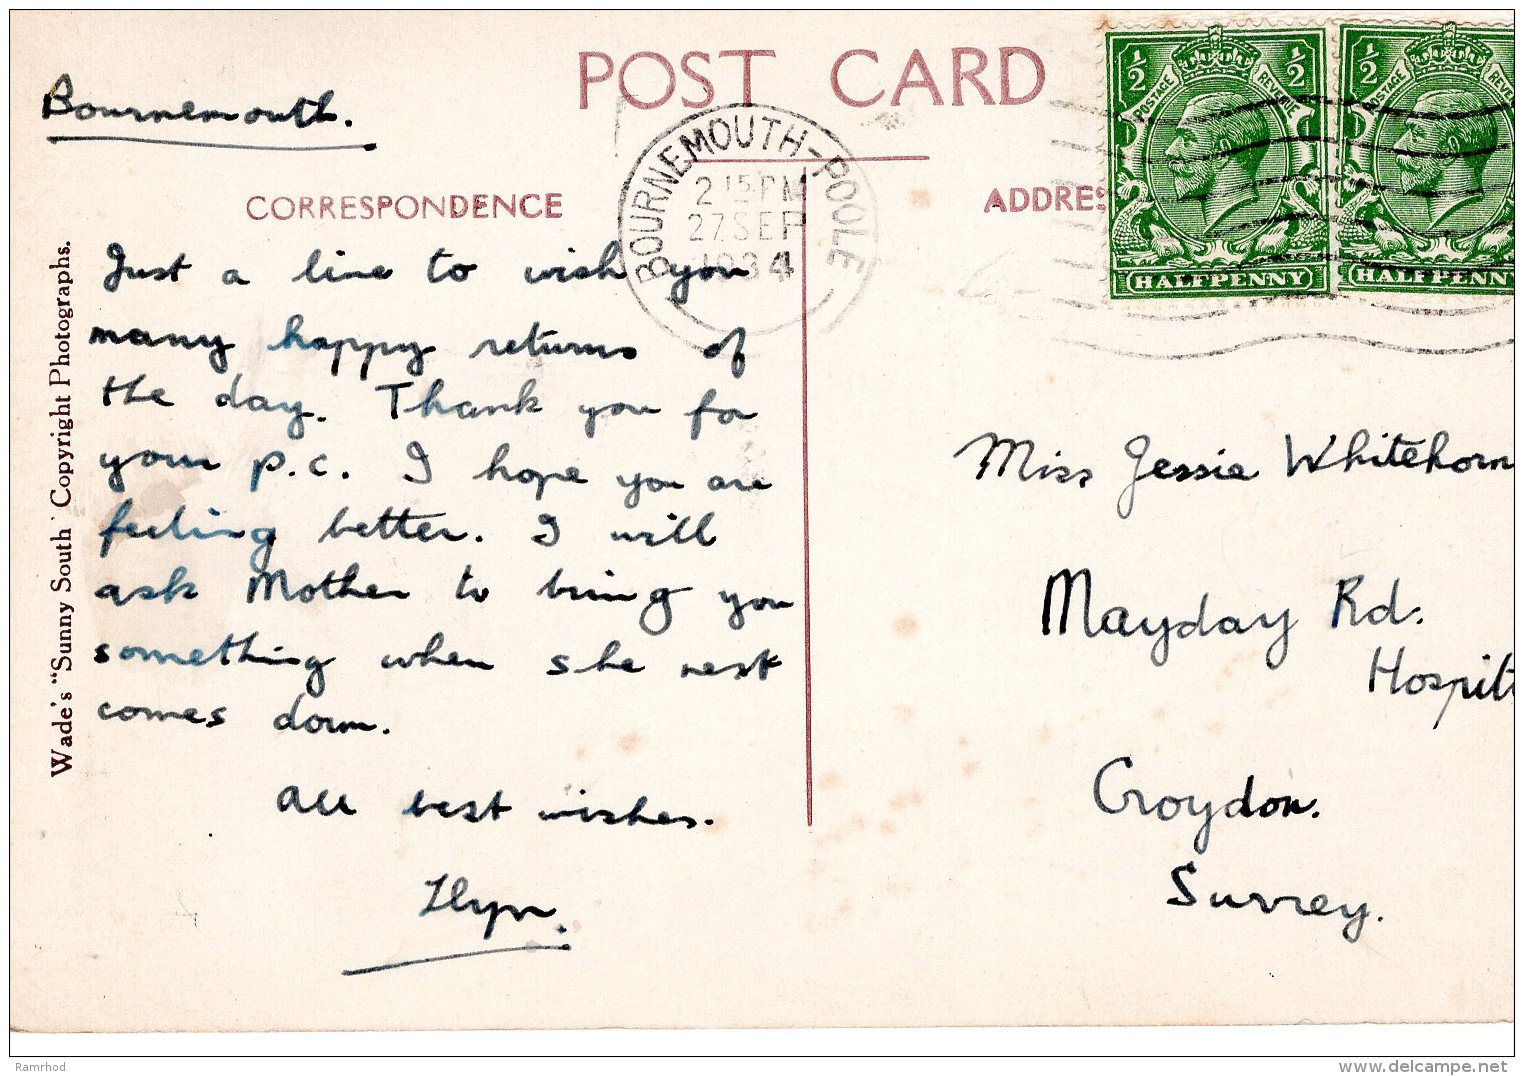 POST CARD
Bournemouth.
BOURNEMOUTH-POOLE
2 15 PM
27 SEP
1934
½ ½
POSTAGE REVENUE
HALFPENNY
½
POSTAGE
HALFPENNY
CORRESPONDENCE
ADDRES
Just a line to wish you
many happy returns of
the day. Thank you for
your p.c. I hope you are
feeling better. I will
ask Mother to bring you
something when she next
comes down.
All best wishes.
Miss Jessie Whitehorn
Mayday Rd.
Hospit
Croydon.
Surrey.
Wade's "Sunny South" Copyright Photographs.
Ramrhod
www.delcampe.net